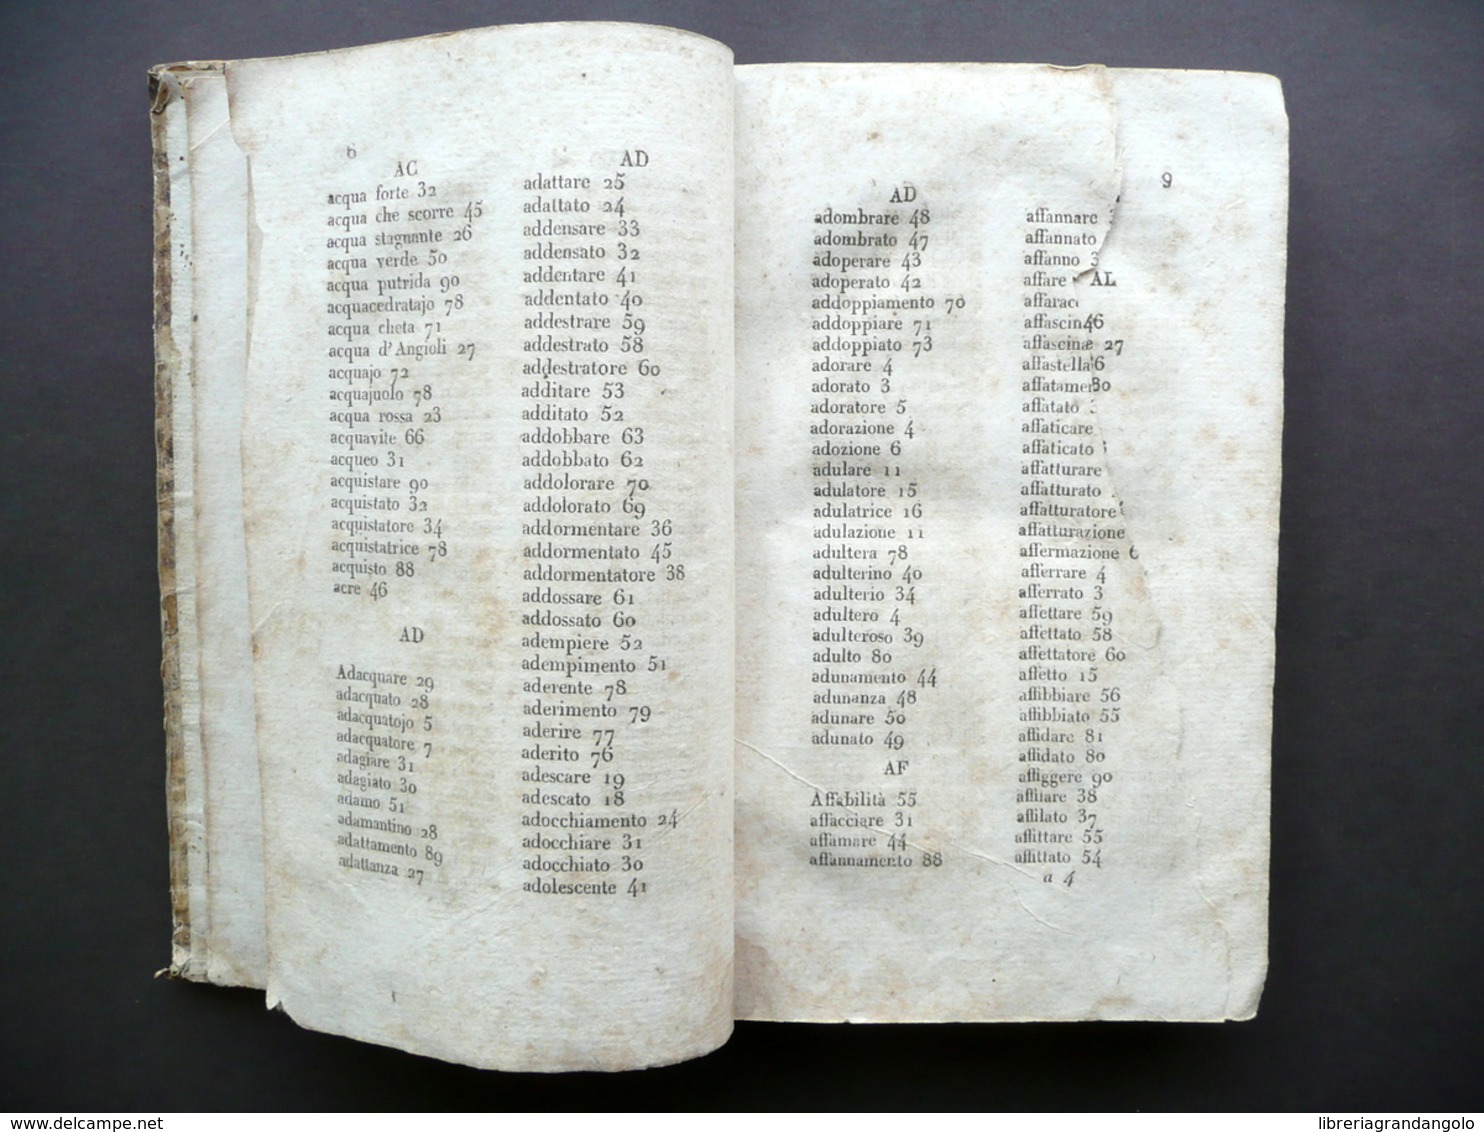 6
AC
acqua forte 32
acqua che scorre 45
acqua stagnante 26
acqua verde 50
acqua putrida 90
acquacedratajo 78
acqua cheta 71
acqua d'Angioli 27
acquajo 72
acquajuolo 78
acqua rossa 23
acquavite 66
acqueo 31
acquistare 90
acquistato 32
acquistatore 34
acquistatrice 78
acquisto 88
acre 46
AD
Adacquare 29
adacquato 28
adacquatojo 5
adacquatore 7
adagiare 31
adagiato 30
adamo 51
adamantino 28
adattamento 89
adattanza 27
AD
adattare 25
adattato 24
addensare 33
addensato 32
addentare 41
addentato 40
addestrare 59
addestrato 58
addestratore 60
additare 53
additato 52
addobbare 63
addobbato 62
addolorare 70
addolorato 69
addormentare 36
addormentato 45
addormentatore 38
addossare 61
addossato 60
adempiere 52
adempimento 51
aderente 78
aderimento 79
aderire 77
aderito 76
adescare 19
adescato 18
adocchiamento 24
adocchiare 31
adocchiato 30
adolescente 41
9
AD
adombrare 48
adombrato 47
adoperare 43
adoperato 42
addoppiamento 70
addoppiare 71
addoppiato 73
adorare 4
adorato 3
adoratore 5
adorazione 4
adozione 6
adulare 11
adulatore 15
adulatrice 16
adulazione 11
adultera 78
adulterino 40
adulterio 34
adultero 4
adulteroso 39
adulto 80
adunamento 44
adunanza 48
adunare 50
adunato 49
AF
Affabilità 55
affacciare 31
affamare 44
affannamento 88
affannare 3
affannato
affanno 3
affare AL
affaraci
affascin 46
affascinæ 27
affastella 6
affatamen 80
affatato
affaticare
affaticato
affatturare
affatturato
affatturatore
affatturazione
affermazione 6
afferrare 4
afferrato 3
affettare 59
affettato 58
affettatore 60
affetto 15
affibbiare 56
affibbiato 55
affidare 81
affidato 80
affiggere 90
affilare 38
affilato 37
affittare 55
affittato 54
a 4
delcampe.net
libreriagrandangolo